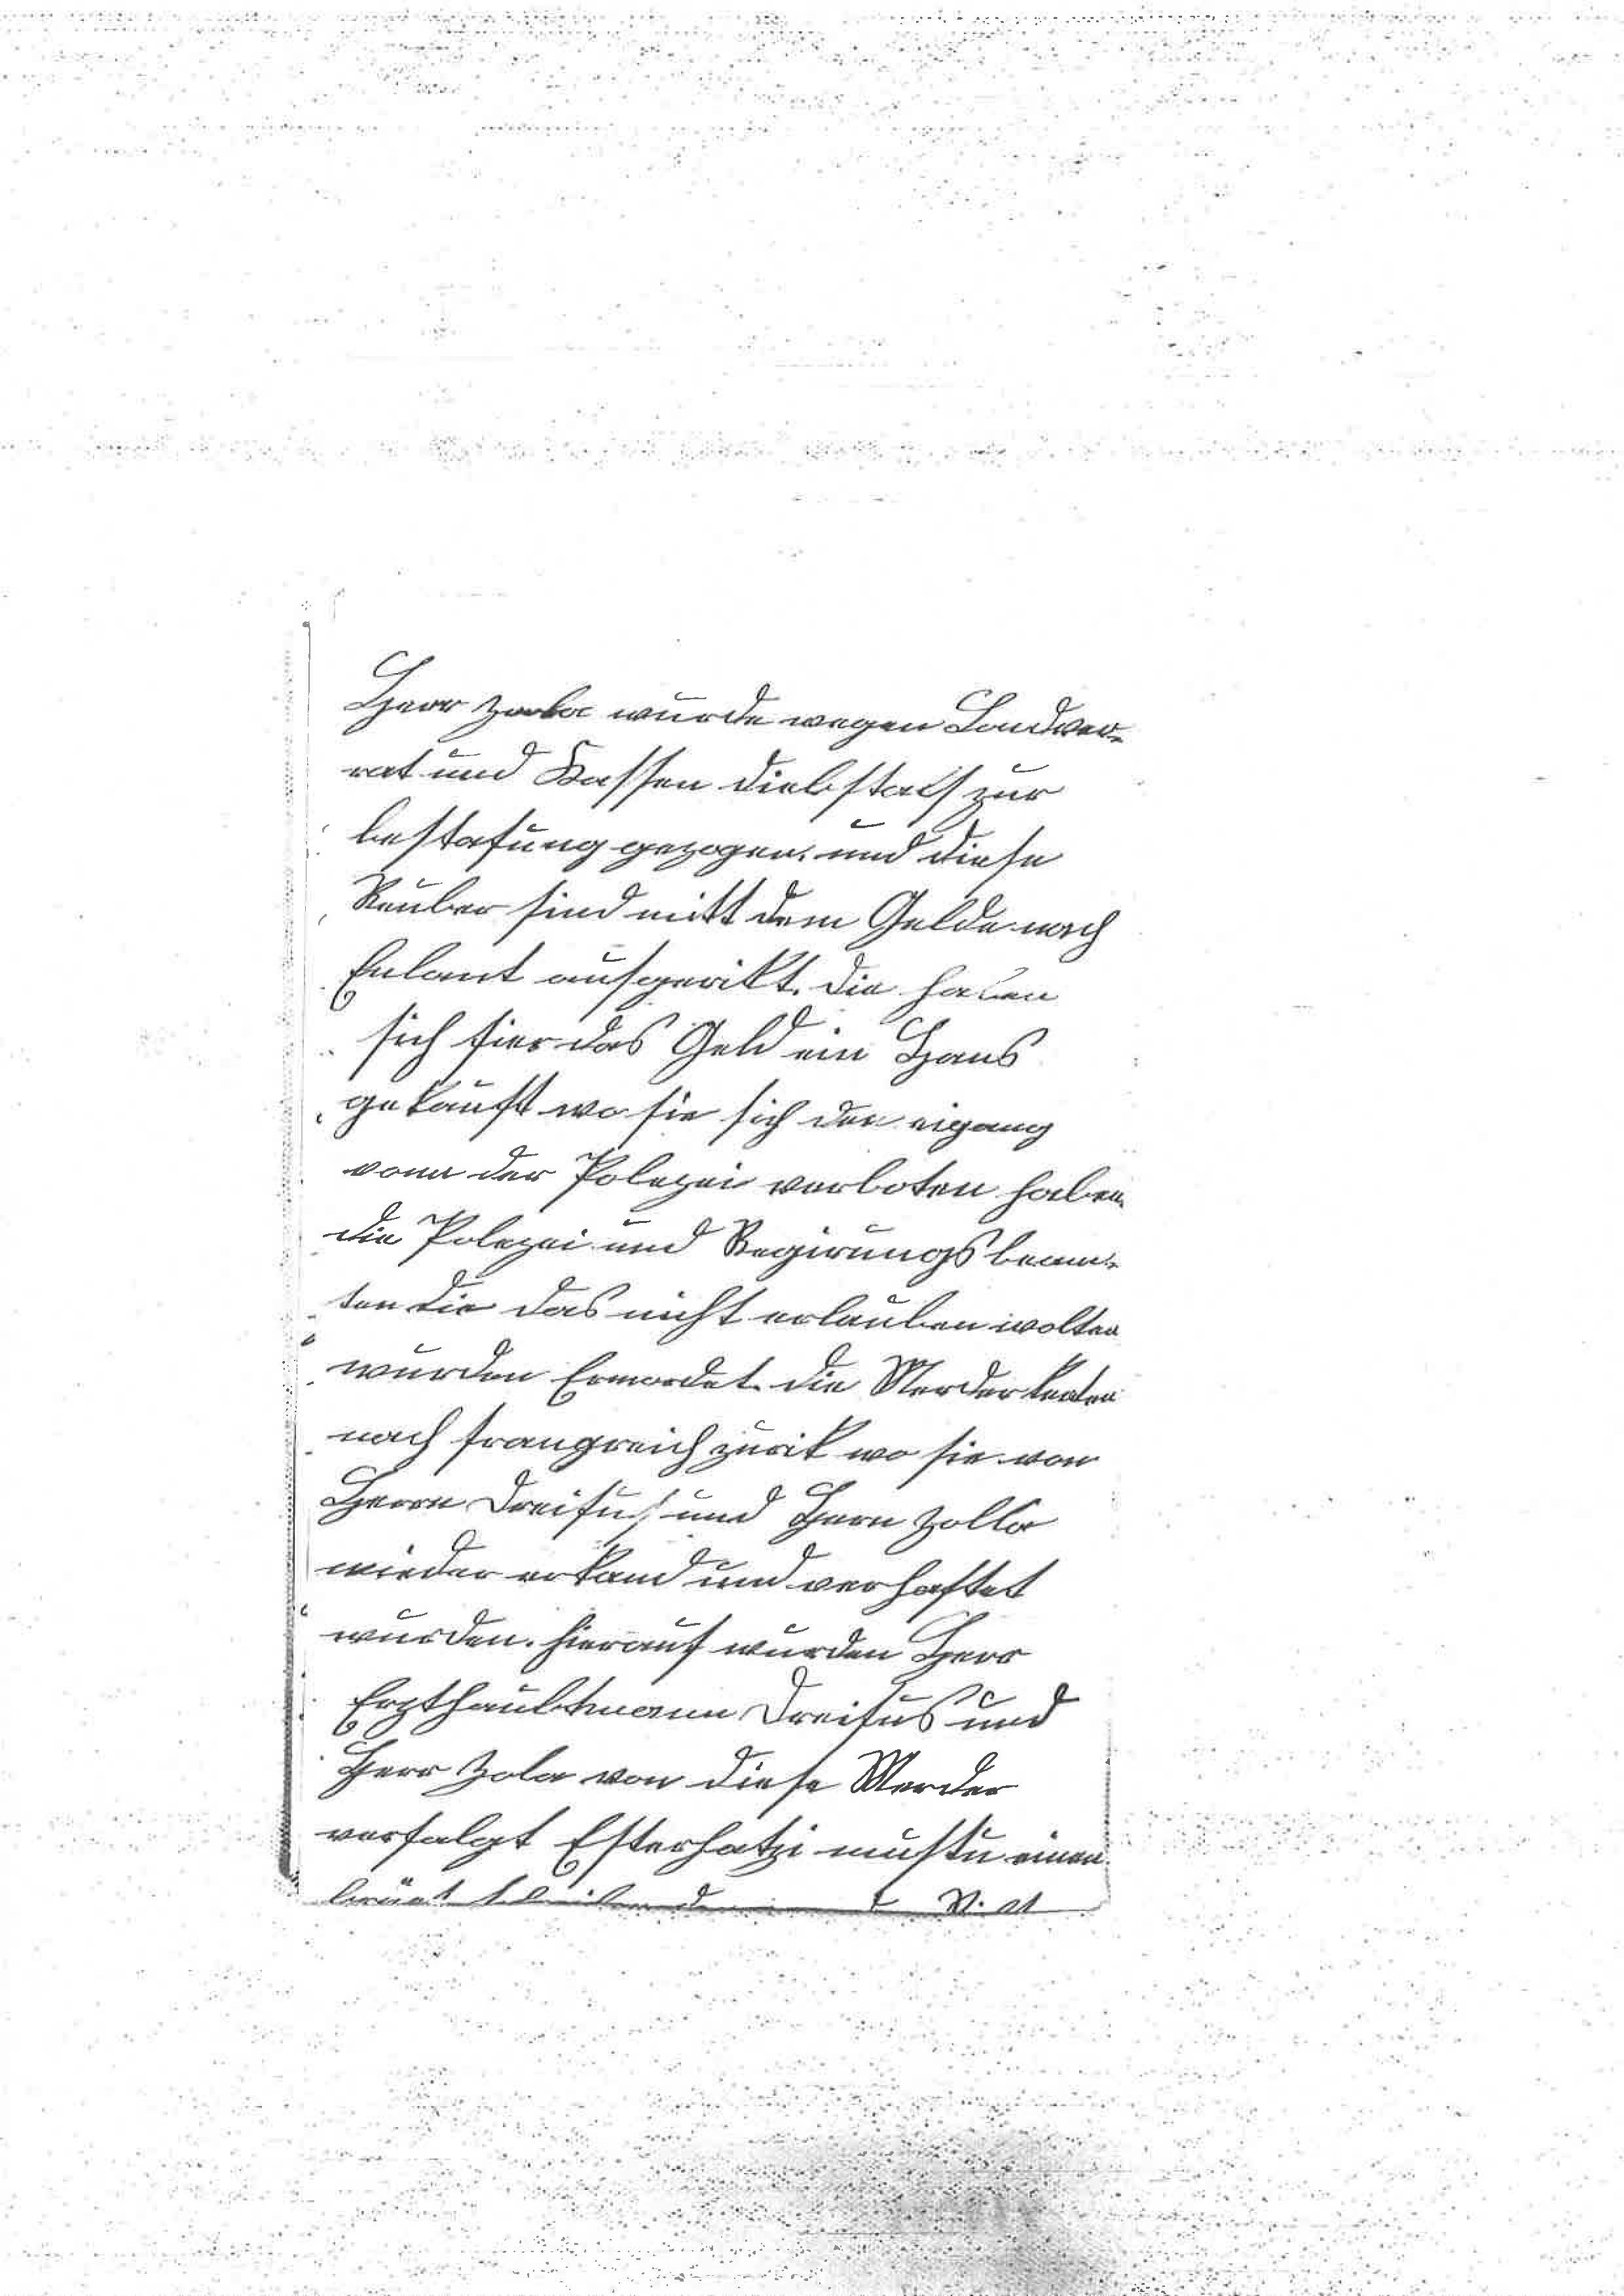 Herr Zola wurde wegen Landver-
rat und Kassen diebstals zur
bestafung gezogen. und diese
Reuber sind mitt dem Gelde nach
Enlant ausgerikt. die haben
sich fier das Geld ein Haus
gekauft wo sie sich den eigang
vonn der Polezei verboten haben.
die Polezei und Regirungs beam-
ten die das nicht erlauben wolten
wurden Ermordet. die Merder kerten
nach frangreich zurik wo sie von
Herrn Dreifus und Hern Zolla
wieder erkand und verhaftet
wurden. hierauf wurden Herr
Erzthaubtmann Dreifus und
Herr Zola von diese Merder
verfolgt Esterhatzi muste einen